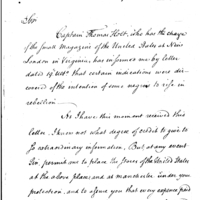 Sir
Captain Thomas Holt, who has the charge
of the small Magazine of the United States at New
London in Virginia, has informed me by letter
dated 19 Ulto. that certain indications were dis-
covered of the intention of some negroes to rise in
rebellion
As I have this moment received this
letter. I know not what degree of credit to give to
so extraordinary information. But at any event
Sir permit me to place the stores of the United States
at the above place and at Manchester under your
protection, and to assure you that any expence paid